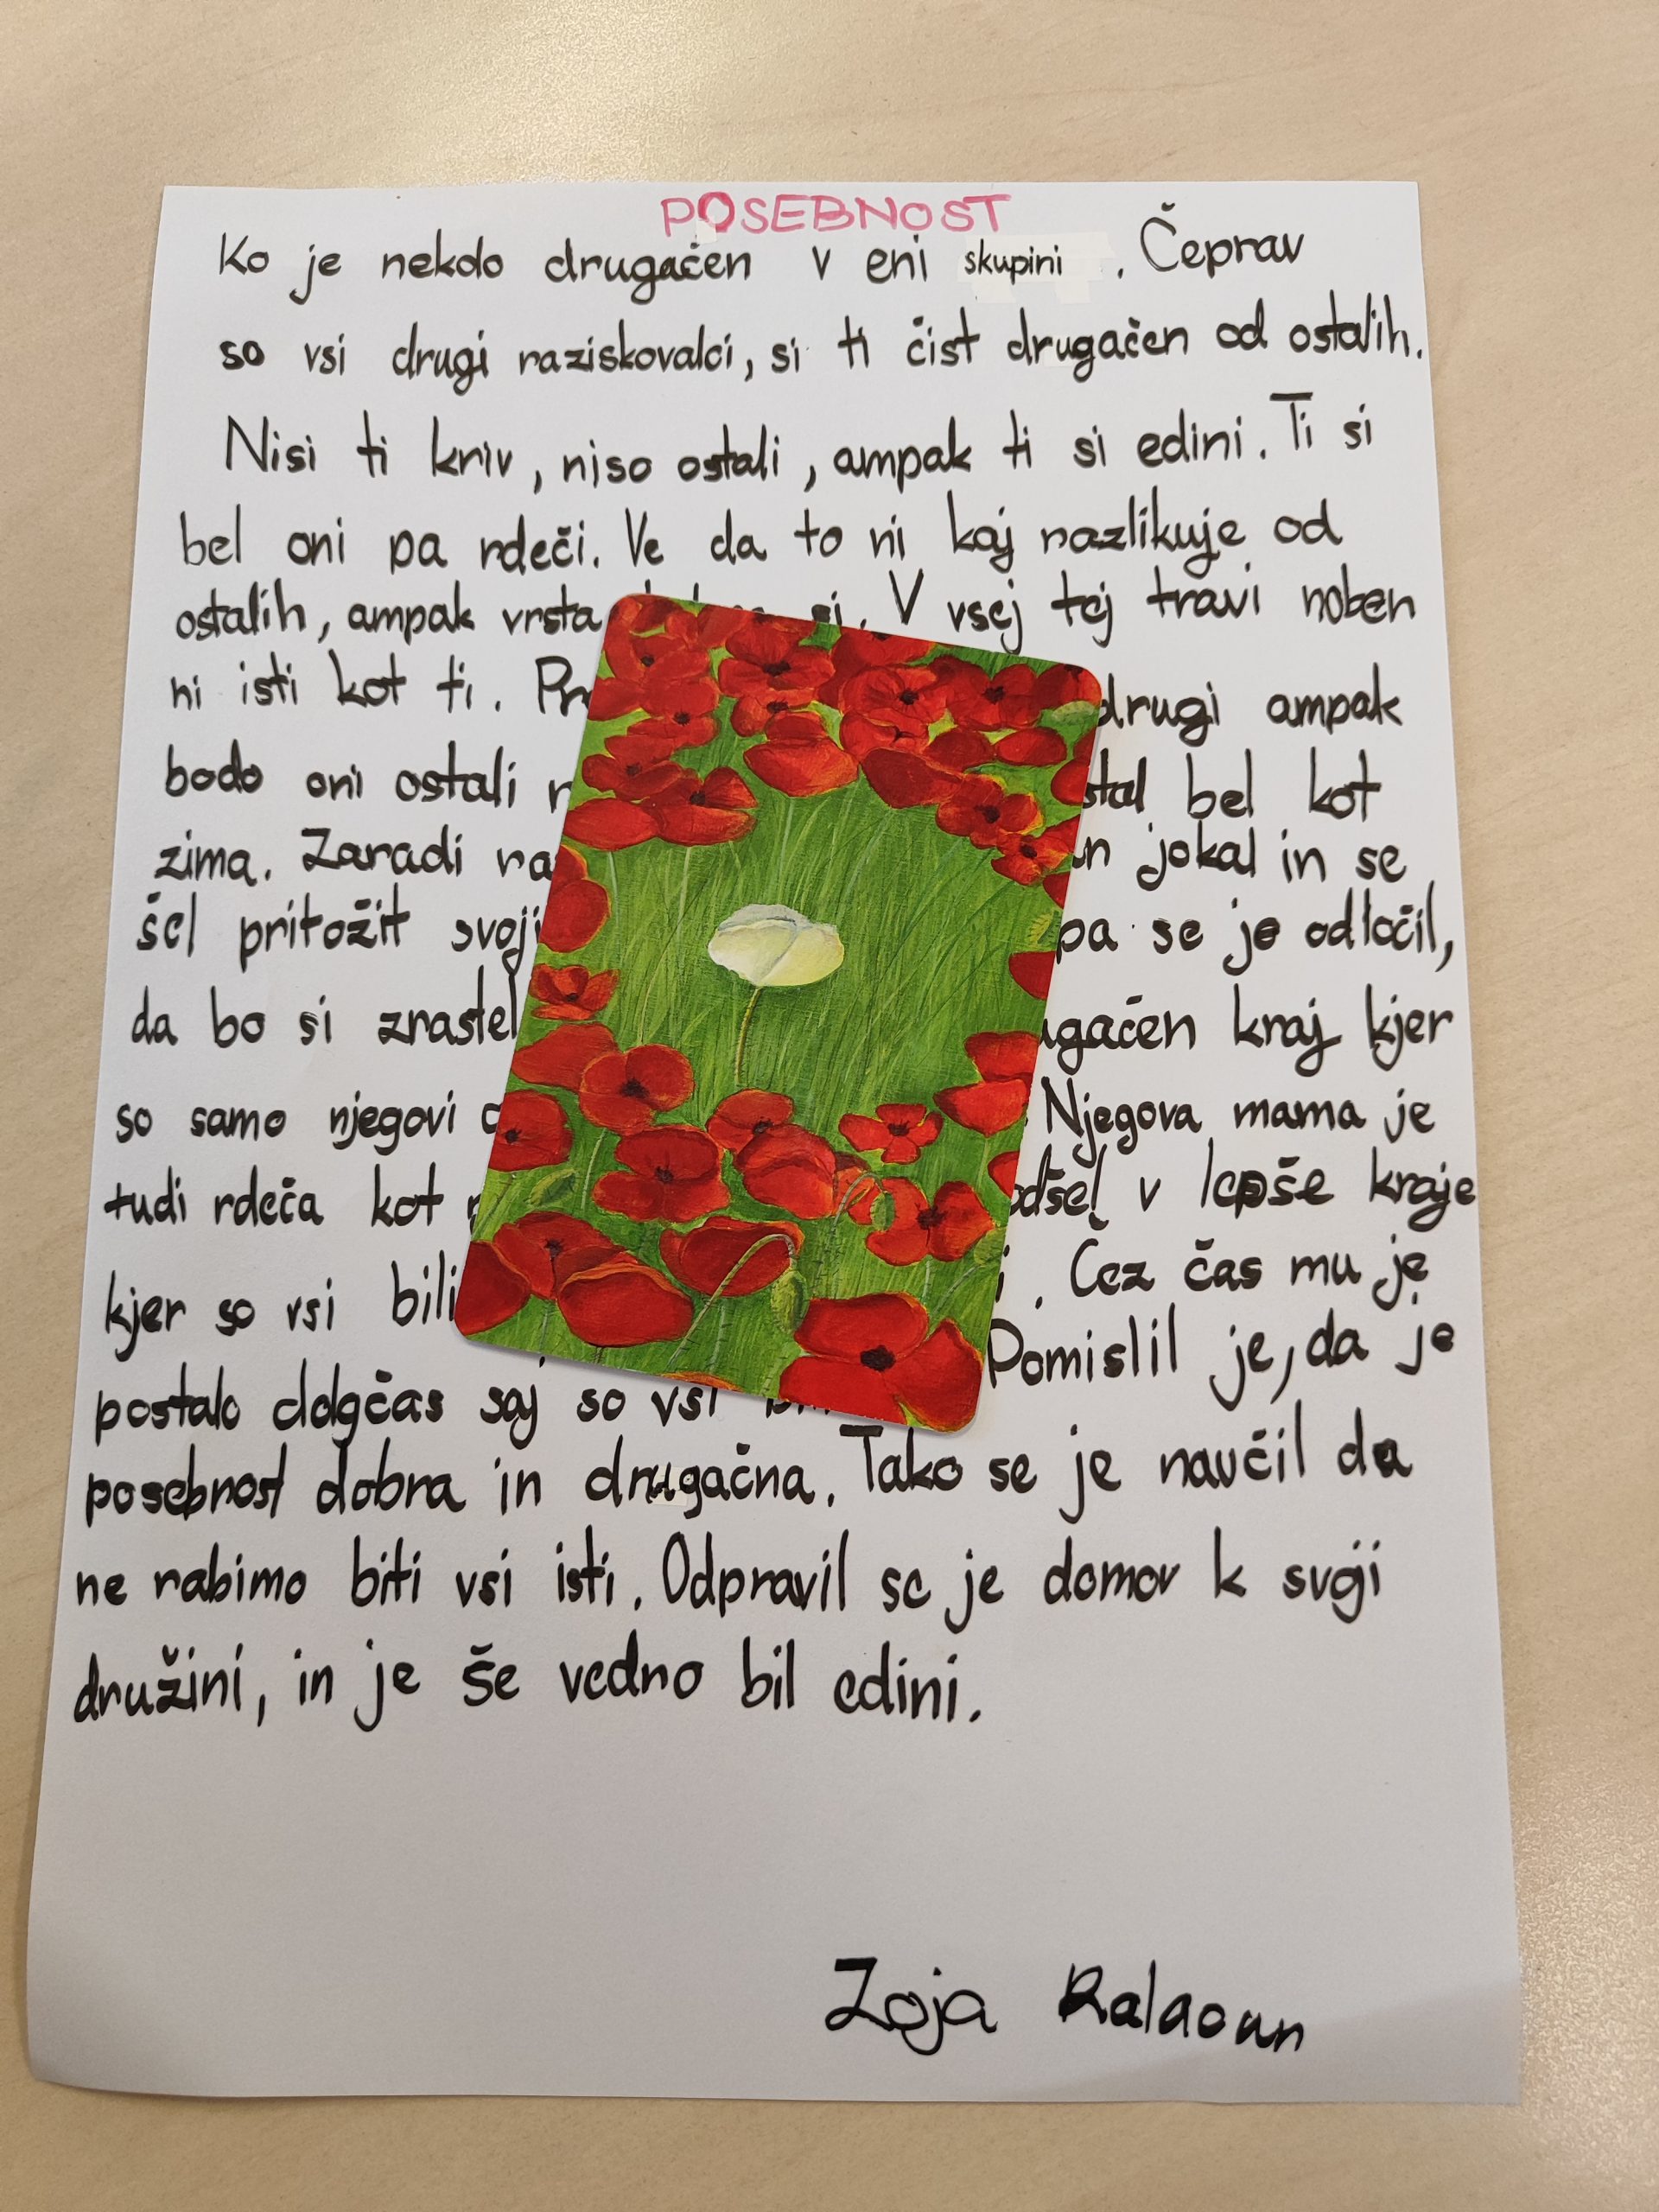 POSEBNOST
Ko je nekdo drugačen v eni skupini . Čeprav
so vsi drugi raziskovalci, si ti čist drugačen od ostalih.
Nisi ti kriv, niso ostali, ampak ti si edini. Ti si
bel oni pa rdeči. Ve da to ni kaj razlikuje od
ostalih, ampak vrsta si. V vsej tej travi noben
ni isti kot ti. drugi ampak
bodo oni ostali bel kot
zima. Zaradi jokal in se
šel pritožit pa se je odločil,
da bo si zrastel kraj kjer
so samo njegovi Njegova mama je
tudi rdeča kot v lepše kraje
kjer so vsi bili . Čez čas mu je
postalo dolgčas saj so vsi Pomislil je, da je
posebnost dobra in drugačna. Tako se je naučil da
ne rabimo biti vsi isti. Odpravil se je domov k svoji
družini, in je še vedno bil edini.
Zoja